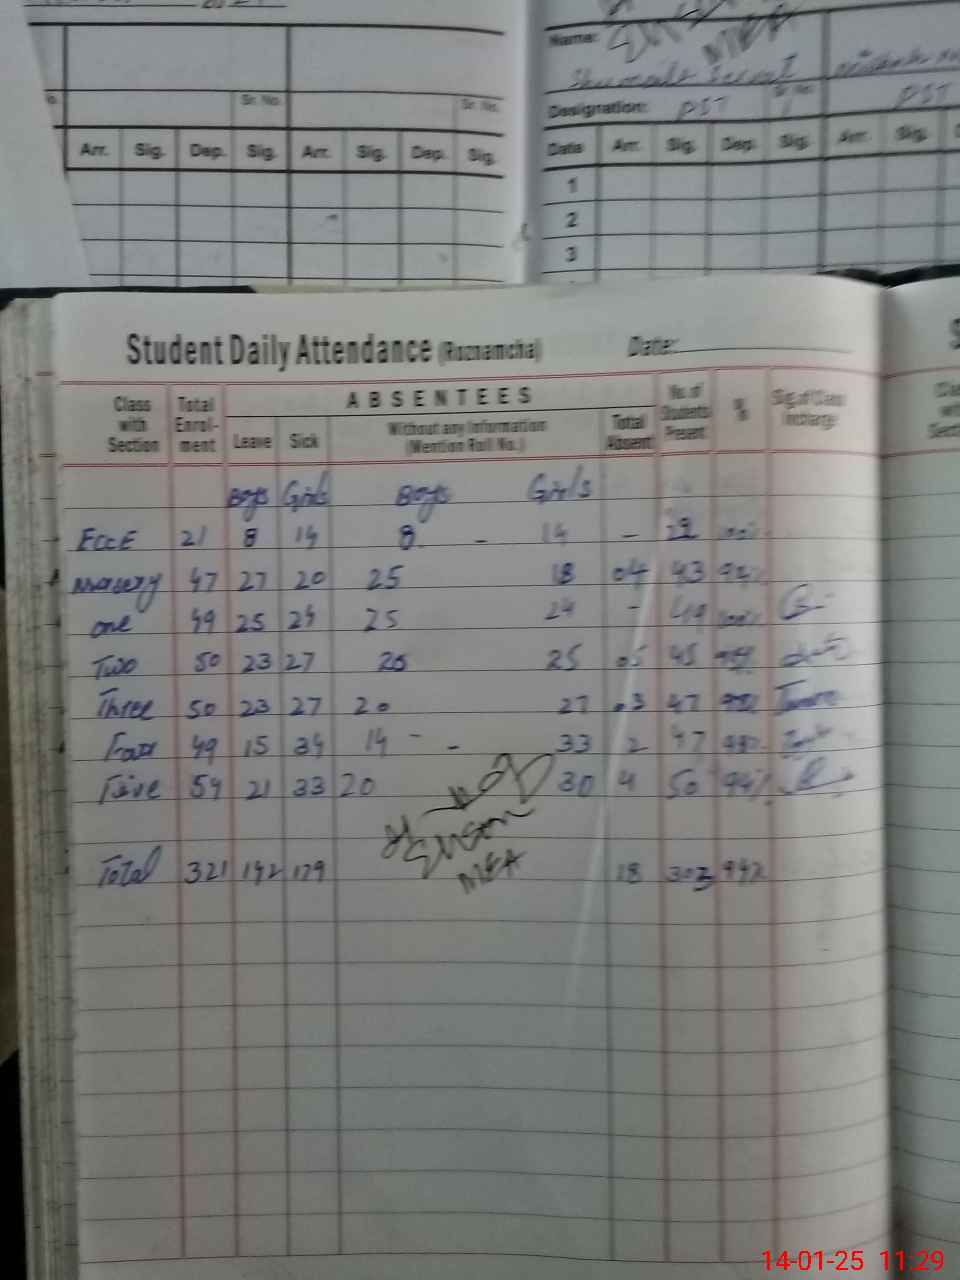 Name:
Sr. No.
Sr. No.
Sr. No.
Designation: PST
PST
Arr. Sig. Dep. Sig. Arr. Sig. Dep. Sig.
Date Arr. Sig. Dep. Sig. Arr. Sig.
1
2
3
Student Daily Attendance (Roznamcha) Date:
Class with Section
Total Enrol-ment
ABSENTEES
Leave Sick
Without any Information (Mention Roll No.)
Total Absent
No. of Students Present
%
Sig. of Class Incharge
Boys Girls Boys Girls
ECCE 21 8 14 8 - 14 -
Nursery 47 27 20 25 18 04 43
one 49 25 24 25 24 - 49 100%
Two 50 23 27 25 05 45
Three 50 23 27 20 27 03 47
Four 49 15 34 14 - - 33 2 47
Five 54 21 33 20 30 4 50 94%
MEA
Total 321 142 179 18 303 94%
14-01-25 11:29